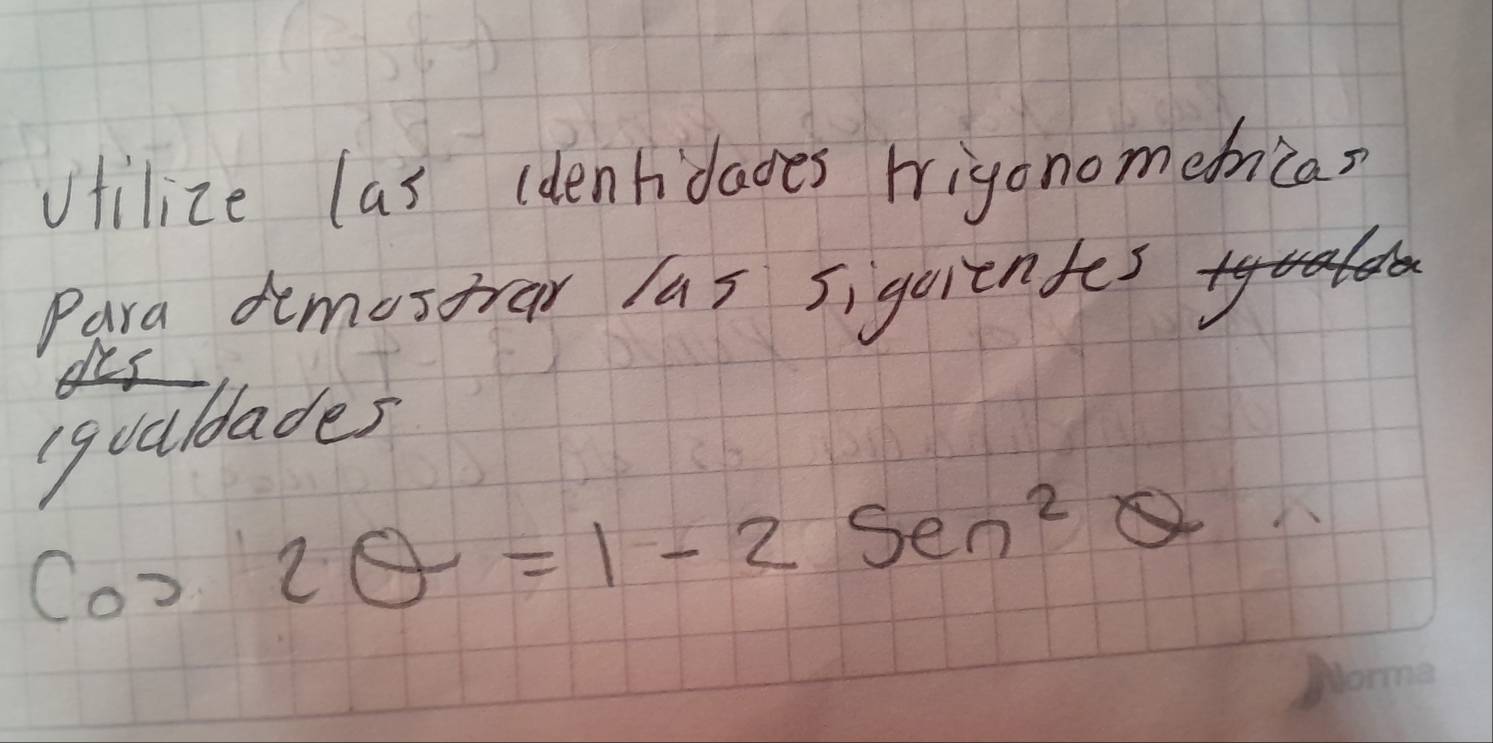 Utilize las identidades trigonometricas
para demostrar las siguientes igualda
des
igualdades
Cos 2θ = 1 - 2 Sen² θ
Norma